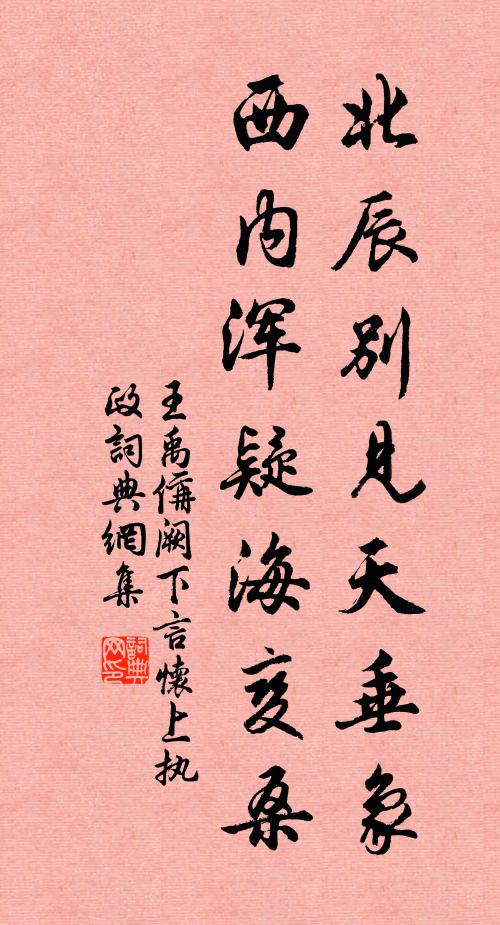 北辰别见天垂象
西内浑疑海变桑
王禹偁阙下言懷上执
政詞典網集
詞典网印